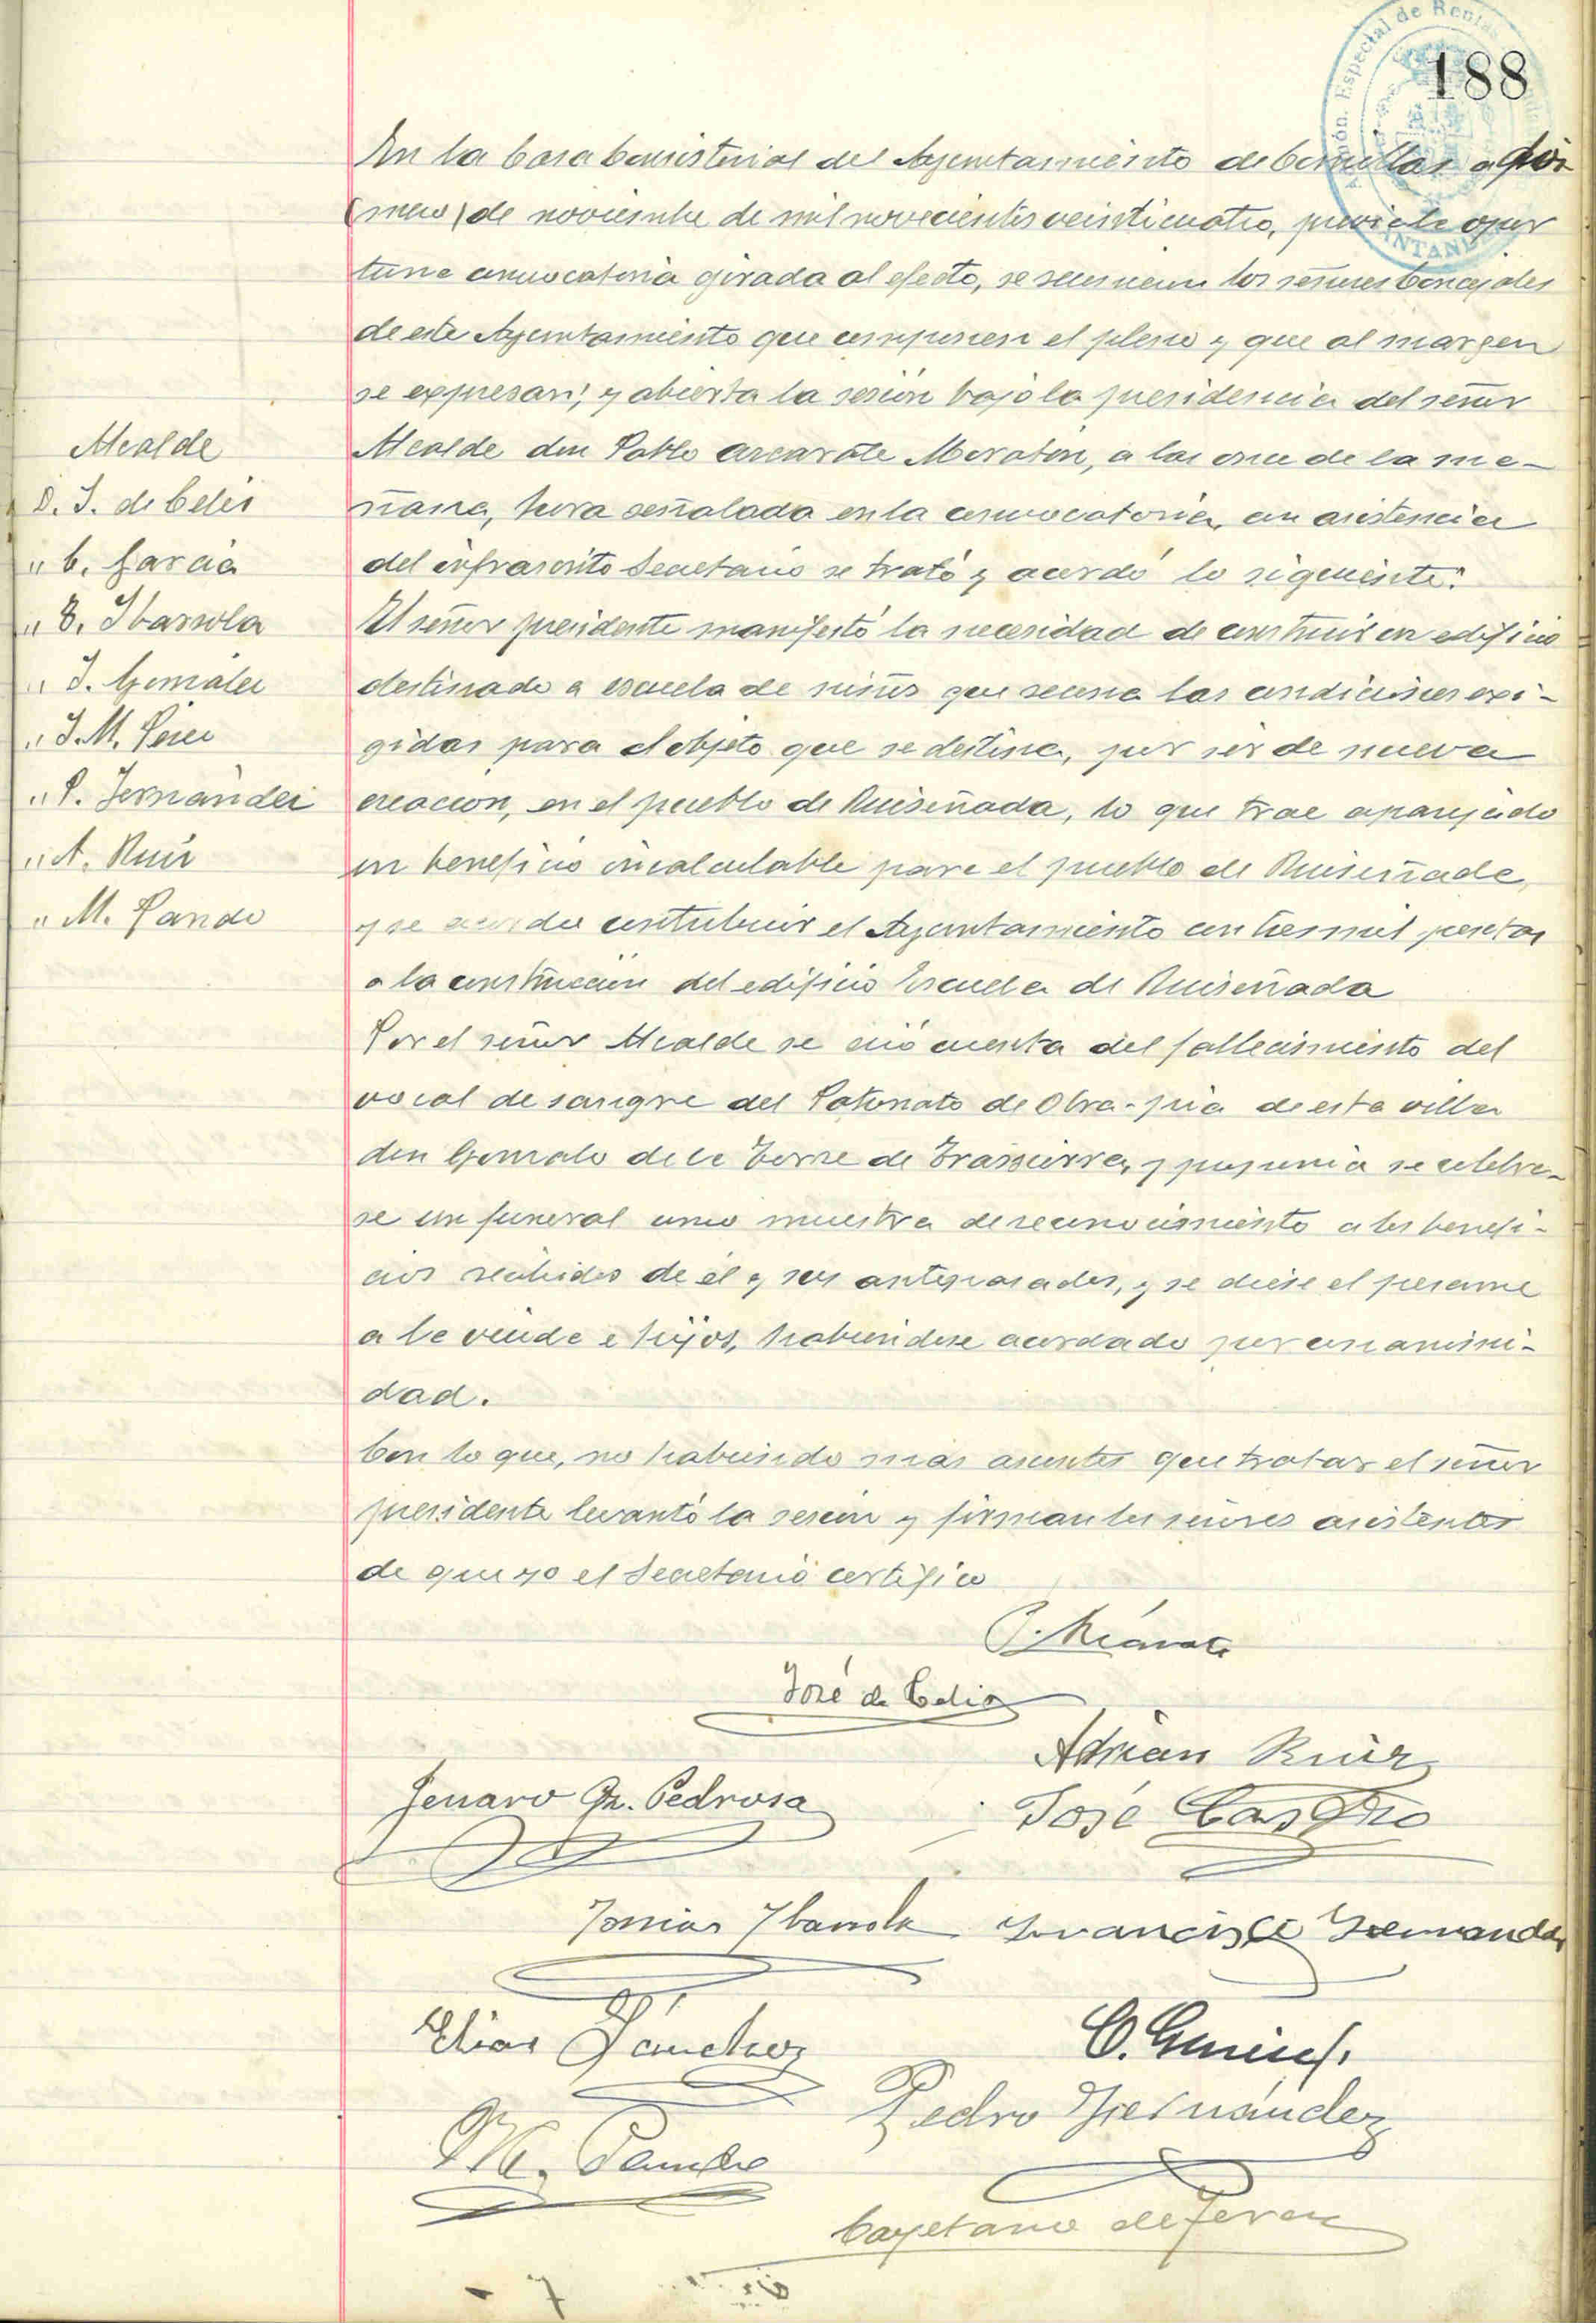 188
En la Casa Consistorial del Ayuntamiento de Comillas a pri-
mero de noviembre de mil novecientos veinticuatro, previa la opor
tuna convocatoria girada al efecto, se reunieron los señores Concejales
de este Ayuntamiento que componen el pleno y que al margen
se expresan; y abierta la sesión bajo la presidencia del señor
Alcalde don Pablo Azcarate Moraton, a las once de la ma-
ñana, hora señalada en la convocatoria, con asistencia
del infrascrito Secretario se trató y acordó lo siguiente:
El señor presidente manifestó la necesidad de construir un edificio
destinado a escuela de niños que reuna las condiciones exi-
gidas para el objeto que se destina, por ser de nueva
creacion, en el pueblo de Ruiseñada, lo que trae aparejado
un beneficio incalculable para el pueblo de Ruiseñada,
y se acordo contribuir el Ayuntamiento con tres mil pesetas
a la construccion del edificio Escuela de Ruiseñada
Por el señor Alcalde se dió cuenta del fallecimiento del
vocal de sangre del Patronato de Obra-pia de esta villa
don Gonzalo de la Torre de Trassierra, y proponia se celebra-
se un funeral como muestra de reconocimiento a los benefi-
cios recibidos de él y sus antepasados, y se diese el pesame
a la viuda e hijos, habiendose acordado por unanimi-
dad.
Con lo que, no habiendo más asuntos que tratar el señor
presidente levantó la sesion y firman los señores asistentes
de que yo el Secretario certifico
Alcalde
D. J. de Celis
" C. Garcia
" T. Ibarrola
" J. Gonzalez
" J. M. Pérez
" P. Fernández
" A. Ruiz
" M. Pando
P. Azcarate
José de Celis
Adrian Ruiz
Jenaro Gz. Pedrosa
José Castro
Tomas Ibarrola Francisco Fernandez
Elias Sanchez
Pedro Fernández
M. Pando
Cayetano de